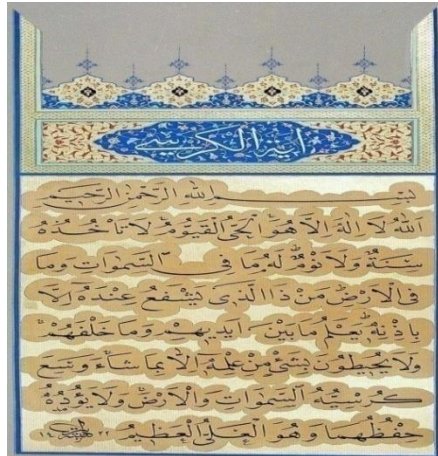 آية الكرسي
بسم الله الرحمن الرحيم
الله لا اله الا هو الحي القيوم لا تاخذه
سنة ولا نوم له ما في السموات وما
في الارض من ذا الذي يشفع عنده الا
باذنه يعلم ما بين ايديهم وما خلفهم
ولا يحيطون بشئ من علمه الا بما شاء وسع
كرسيه السموات والارض ولا يؤده
حفظهما وهو العلي العظيم